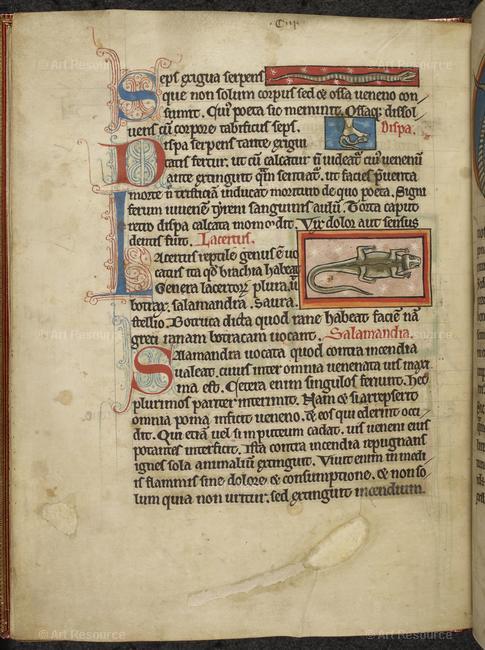 Seps exigua serpens
que non solum corpus sed & ossa ueneno con
sumit. Cui' poeta sic meminit. Ossaq; dissol
uens cū corpore tabificus seps. Dispa.
Dispa serpens tante exigui
tatis fertur. ut cū calcatur ñ uideat' cui' uenenū
ante extinguit qm̄ sentiat'. ut facies p̄uenta
morte ñ tristiciā induceat morituro de quo poeta. Signi
ferum iuuenē tyreni sanguinis aulū. Torta caput
retro dispa calcata momordit. Vix dolor aut sensus
dentis fuit. Lacertus.
Lacertus reptile genus ē uo
catus ita qd̄ brachia habeat
Genera lacertorȝ plura. ū
botrax. salamandra. saura.
stellio. Botraca dicta quod rane habeat faciē nā
greci ranam botracam uocant. Salamandra.
Salamandra uocata quod contra incendia
ualeat. cuius inter omnia uenenata uis maxi
ma est. Cetera enim singulos feriunt. hec
plurimos pariter interimit. Nam & si arrepserit
omnia poma inficit ueneno. & eos qui ederint occi
dit. Qui etiā uel si in puteum cadat. uis ueneni eius
potantes interficit. Ista contra incendia repugnans
ignes sola animaliū extinguit. Viuit enim in medi
is flammis sine dolore & consumptione. & non so
lum quia non uritur. sed extinguit incendium.
© Art Resource